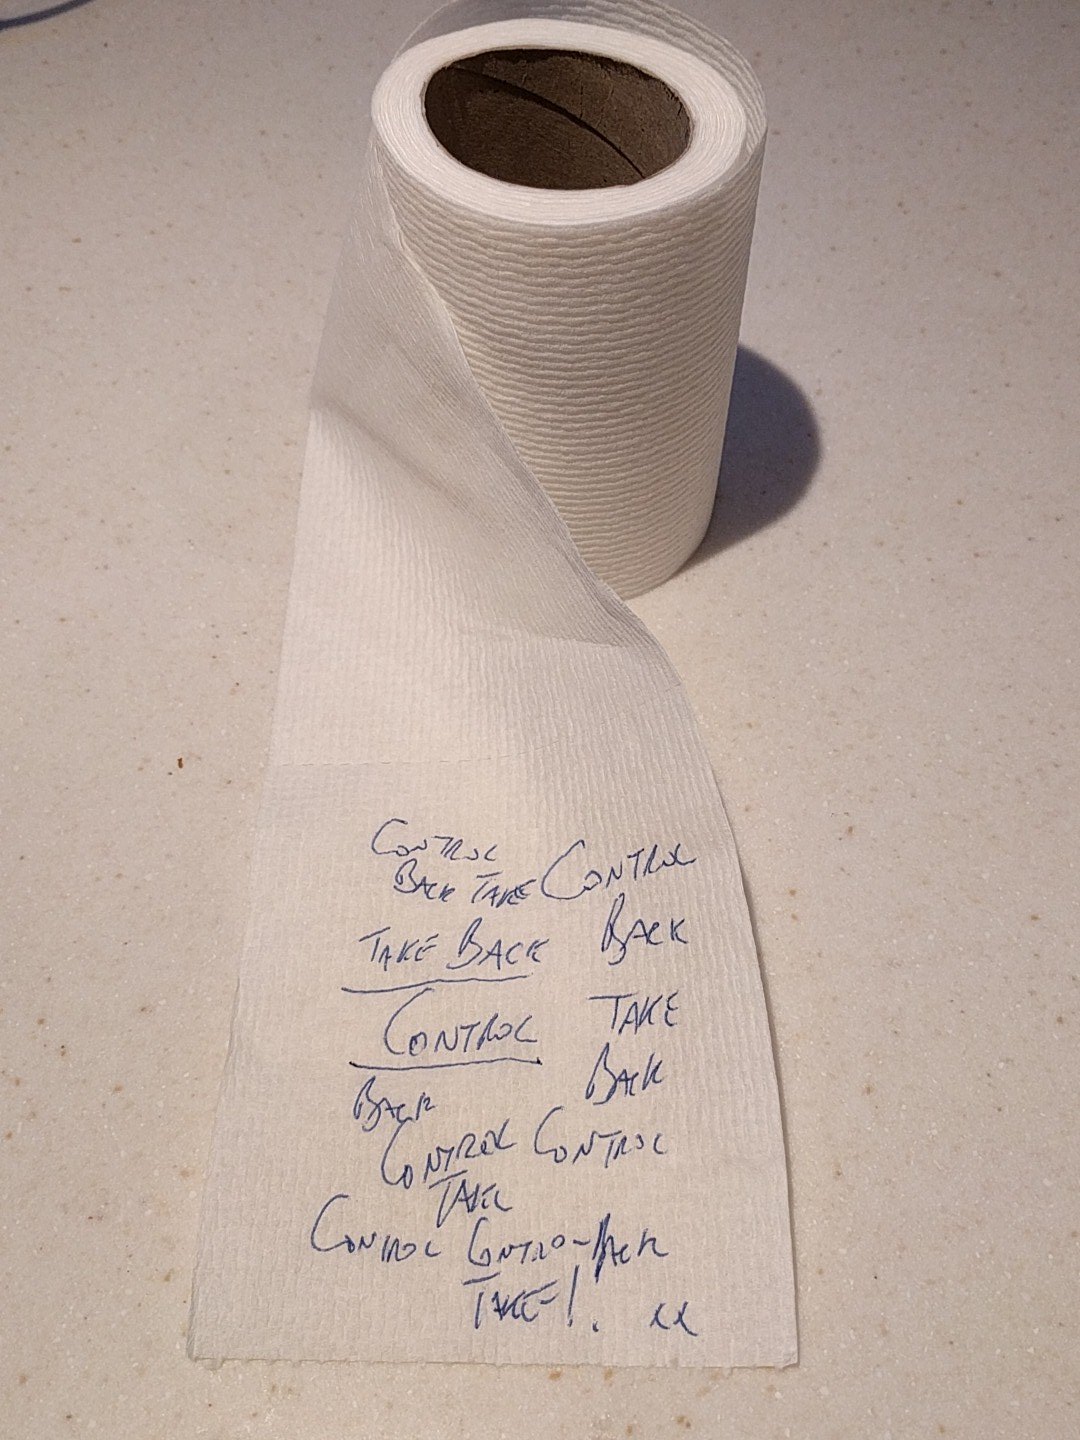 CONTROL
BACK TAKE CONTROL
BACK
TAKE BACK
CONTROL TAKE
BACK
BACK
CONTROL CONTROL
TAKE
CONTROL CONTRO-BACK
TAKE!. xx